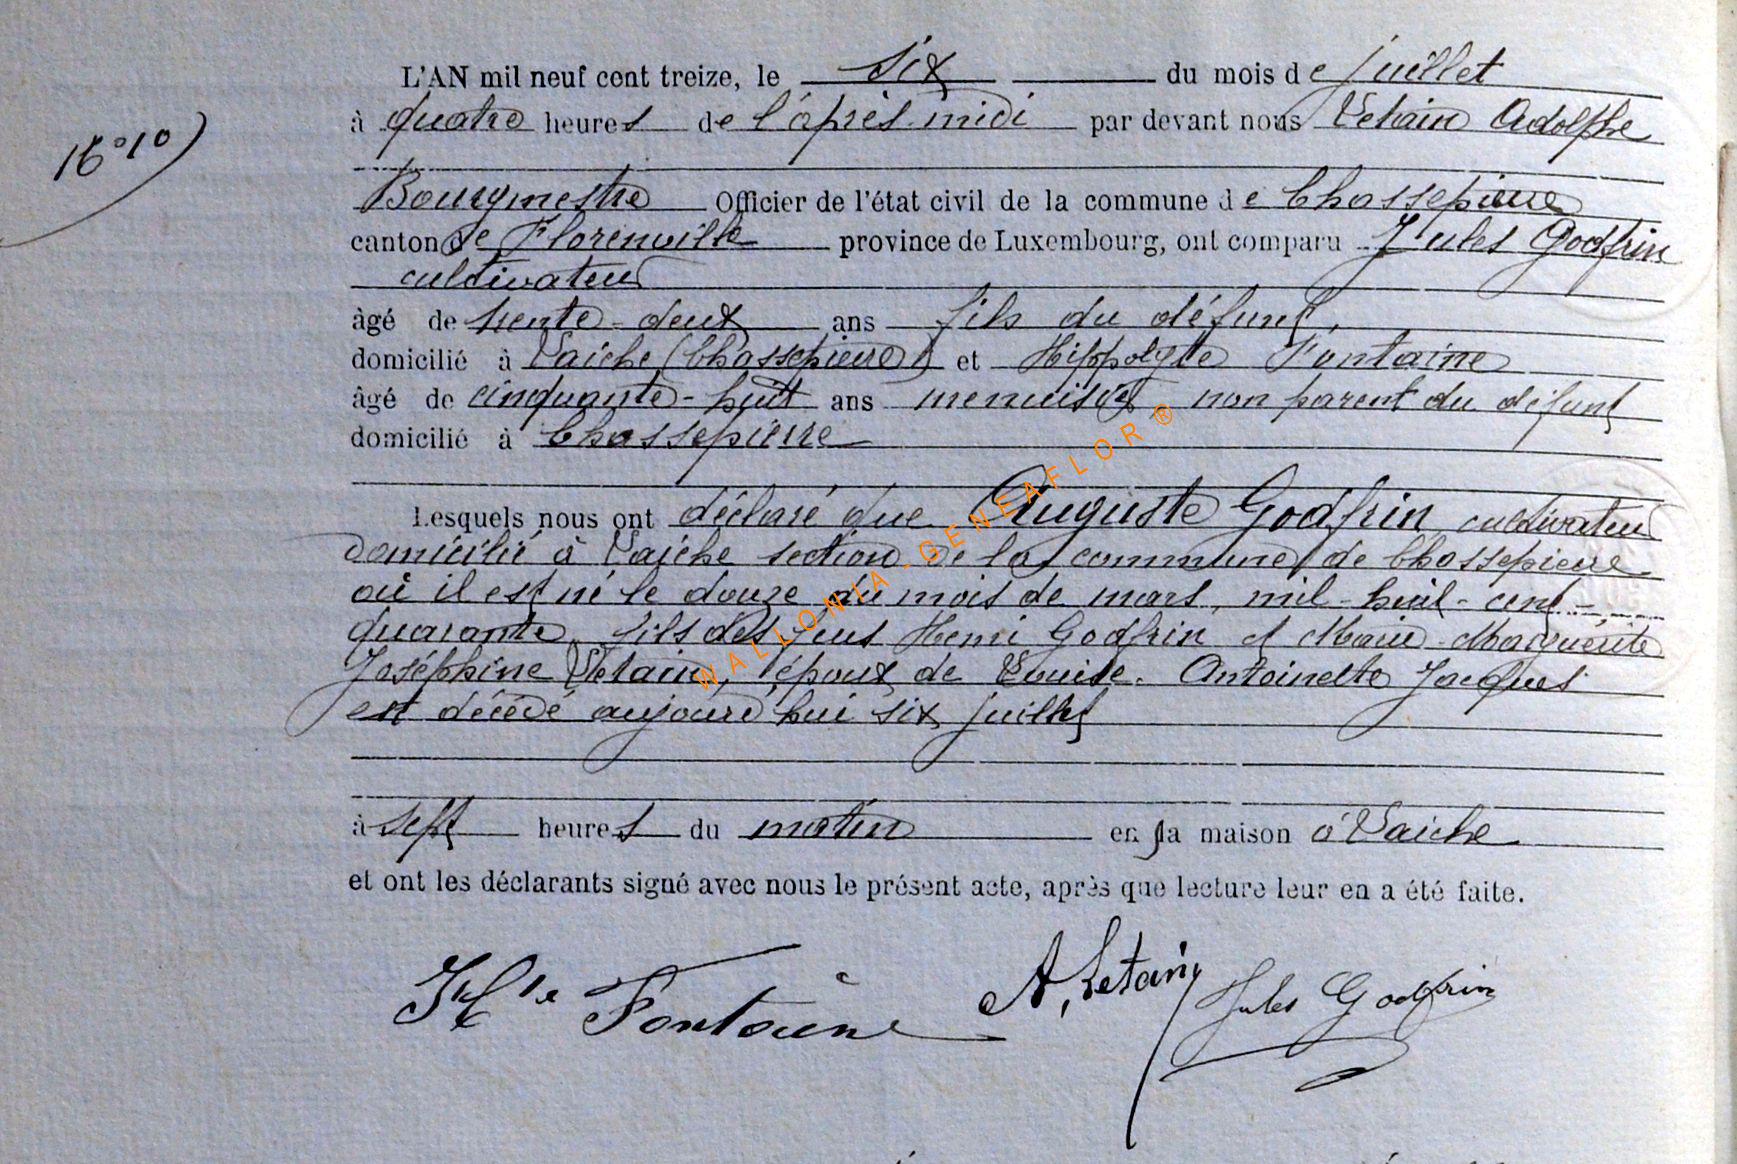 L'AN mil neuf cent treize, le six du mois de juillet
à quatre heures de l'après-midi par devant nous Letain Adolphe
N° 10
Bourgmestre Officier de l'état civil de la commune de Chassepierre
canton de Florenville province de Luxembourg, ont comparu Jules Godfrin
cultivateur
âgé de trente-deux ans fils du défunt,
domicilié à Laiche (Chassepierre) et Hippolyte Fontaine
âgé de cinquante-huit ans menuisier non parent du défunt
domicilié à Chassepierre
Lesquels nous ont déclaré que Auguste Godfrin cultivateur
domicilié à Laiche section de la commune de Chassepierre
où il est né le douze du mois de mars, mil-huit-cent-
quarante, fils des feus Henri Godfrin et Marie-Marguerite
Joséphine Letain, époux de Louise-Antoinette Jacques
est décédé aujourd'hui six juillet
à sept heures du matin en sa maison à Laiche
et ont les déclarants signé avec nous le présent acte, après que lecture leur en a été faite.
Hte Fontaine A. Letain Jules Godfrin
WALLONIA-GENEAFLOR ®